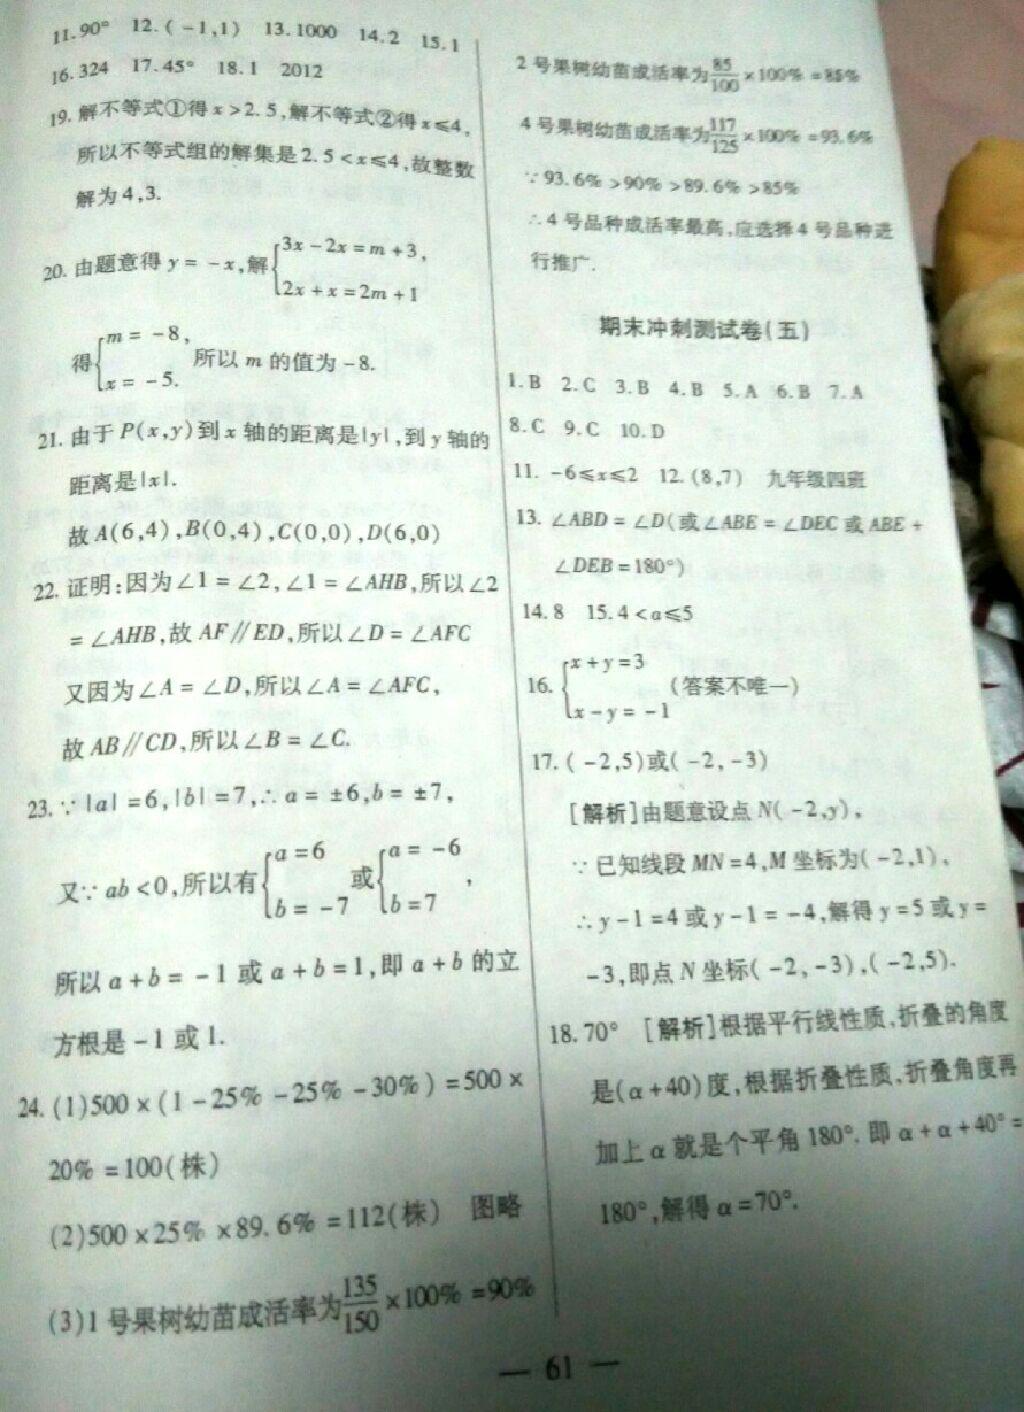 11.90° 12.(-1,1) 13.1000 14.2 15.1
16.324 17.45° 18.1 2012
19.解不等式①得x>2.5,解不等式②得x≤4,
所以不等式组的解集是2.5<x≤4,故整数
解为4,3.
20.由题意得y=-x,解{3x-2x=m+3,
2x+x=2m+1
得{m=-8,
x=-5.
所以m的值为-8.
21.由于P(x,y)到x轴的距离是|y|,到y轴的
距离是|x|.
故A(6,4),B(0,4),C(0,0),D(6,0)
22.证明:因为∠1=∠2,∠1=∠AHB,所以∠2
=∠AHB,故AF∥ED,所以∠D=∠AFC
又因为∠A=∠D,所以∠A=∠AFC,
故AB∥CD,所以∠B=∠C.
23.∵|a|=6,|b|=7,∴a=±6,b=±7,
又∵ab<0,所以有{a=6
b=-7
或{a=-6
b=7
,
所以a+b=-1或a+b=1,即a+b的立
方根是-1或1.
24.(1)500×(1-25%-25%-30%)=500×
20%=100(株)
(2)500×25%×89.6%=112(株) 图略
(3)1号果树幼苗成活率为135/150×100%=90%
2号果树幼苗成活率为85/100×100%=85%
4号果树幼苗成活率为117/125×100%=93.6%
∵93.6%>90%>89.6%>85%
∴4号品种成活率最高,应选择4号品种进
行推广.
期末冲刺测试卷(五)
1.B 2.C 3.B 4.B 5.A 6.B 7.A
8.C 9.C 10.D
11.-6≤x≤2 12.(8,7) 九年级四班
13.∠ABD=∠D(或∠ABE=∠DEC或ABE+
∠DEB=180°)
14.8 15.4<a≤5
16.{x+y=3
x-y=-1
(答案不唯一)
17.(-2,5)或(-2,-3)
[解析]由题意设点N(-2,y),
∵已知线段MN=4,M坐标为(-2,1),
∴y-1=4或y-1=-4,解得y=5或y=
-3,即点N坐标(-2,-3),(-2,5).
18.70° [解析]根据平行线性质,折叠的角度
是(α+40)度,根据折叠性质,折叠角度再
加上α就是个平角180°.即α+α+40°=
180°,解得α=70°.
— 61 —